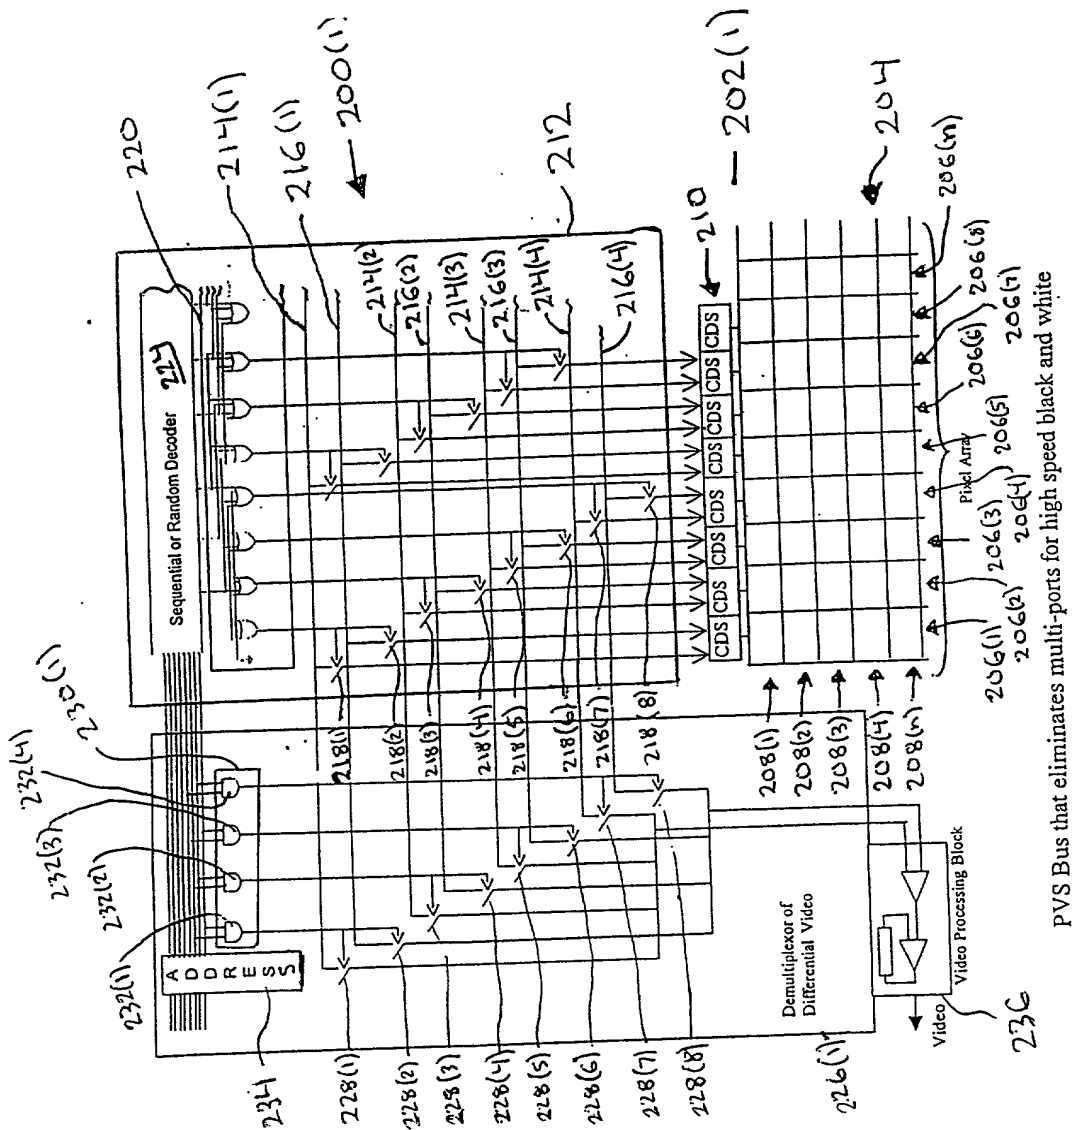 220
214(1)
216(1)
200(1)
212
Sequential or Random Decoder 224
214(2)
216(2)
214(3)
216(3)
214(4)
216(4)
210
202(1)
CDS CDS CDS CDS CDS CDS CDS CDS
204
206(n)
206(8)
206(7)
206(6)
206(5)
206(4)
206(3)
206(2)
206(1)
Pixel Array
208(1)
208(2)
208(3)
208(4)
208(n)
218(1)
218(2)
218(3)
218(4)
218(5)
218(6)
218(7)
218(8)
230(1)
232(4)
232(3)
232(2)
232(1)
ADDRESS
234
228(1)
228(2)
228(3)
228(4)
228(5)
228(6)
228(7)
228(8)
226(1)
Demultiplexor of
Differential Video
Video Processing Block
Video
236
PVS Bus that eliminates multi-ports for high speed black and white